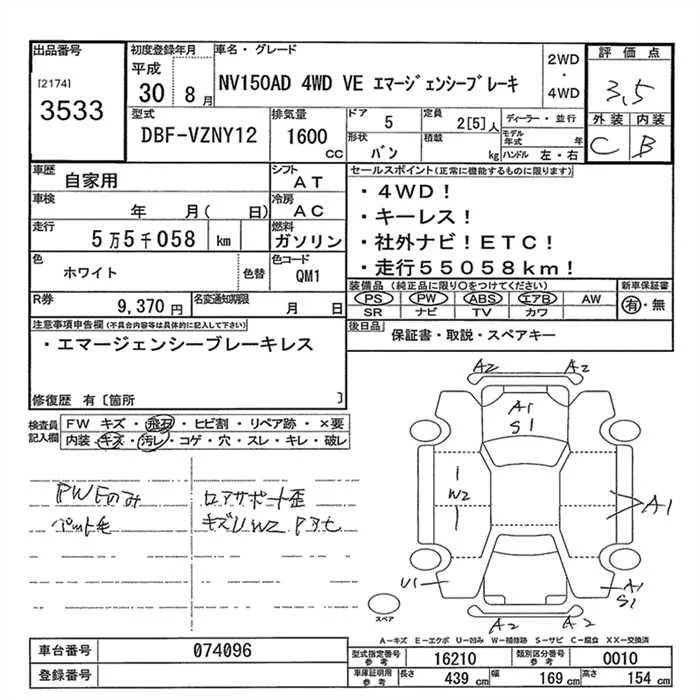 出品番号
[2174]
3533
初度登録年月
平成
30 8月
車名・グレード
NV150AD 4WD VE エマージェンシーブレーキ
2WD
・
4WD
評価点
3.5
外装 内装
C B
型式
DBF-VZNY12
排気量
1600
CC
ドア
5
定員
2[5]人
形状
バン
積載
kg
ディーラー・並行
モデル年式 年
ハンドル 左・右
車歴
自家用
シフト
AT
車検
年 月( 日)
冷房
AC
走行
5万5千058 km
燃料
ガソリン
色
ホワイト
色替
色コード
QM1
R券
9,370円
名変通知期限
月 日
セールスポイント(正常に機能するものに限ります)
・4WD!
・キーレス!
・社外ナビ!ETC!
・走行55058km!
装備品(純正品に限り○をつけてください)
PS PW ABS エアB AW
SR ナビ TV カワ
新車保証書
有・無
後日品
保証書・取説・スペアキー
注意事項申告欄(不具合内容等は具体的に記入して下さい)
・エマージェンシーブレーキレス
修復歴 有[箇所 ]
検査員
記入欄
FW キズ・飛石・ヒビ割・リペア跡・×要
内装・キズ・汚レ・コゲ・穴・スレ・キレ・破レ
PWFのみ
ペット毛
ロアサポート歪
キズUW2
A2 A2
A1
S1
W2
A1
U1
A1
S1
A2 A2
スペア
A-キズ E-エクボ U-凹み W-補修跡 S-サビ C-腐食 XX-交換済
車台番号
074096
登録番号
型式指定番号
参考
16210
類別区分番号
参考
0010
車庫証明用
参考
長さ
439 cm
幅
169 cm
高さ
154 cm